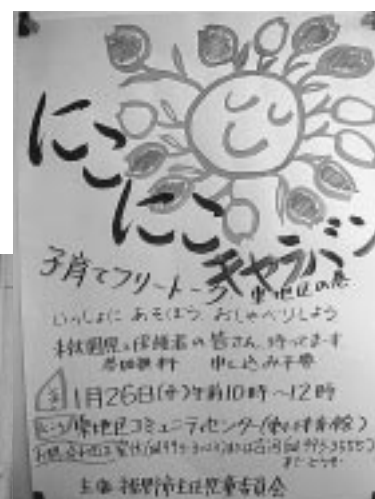 にこ
にこ
キャラバン
子育てフリートーク 東地区の巻
いっしょに あそぼう、おしゃべりしよう
未就園児と保護者の皆さん、待ってます
参加無料 申し込み不要
1月26日(水)午前10時〜12時
東地区コミュニティセンター
までどうぞ
主催 裾野市主任児童委員会